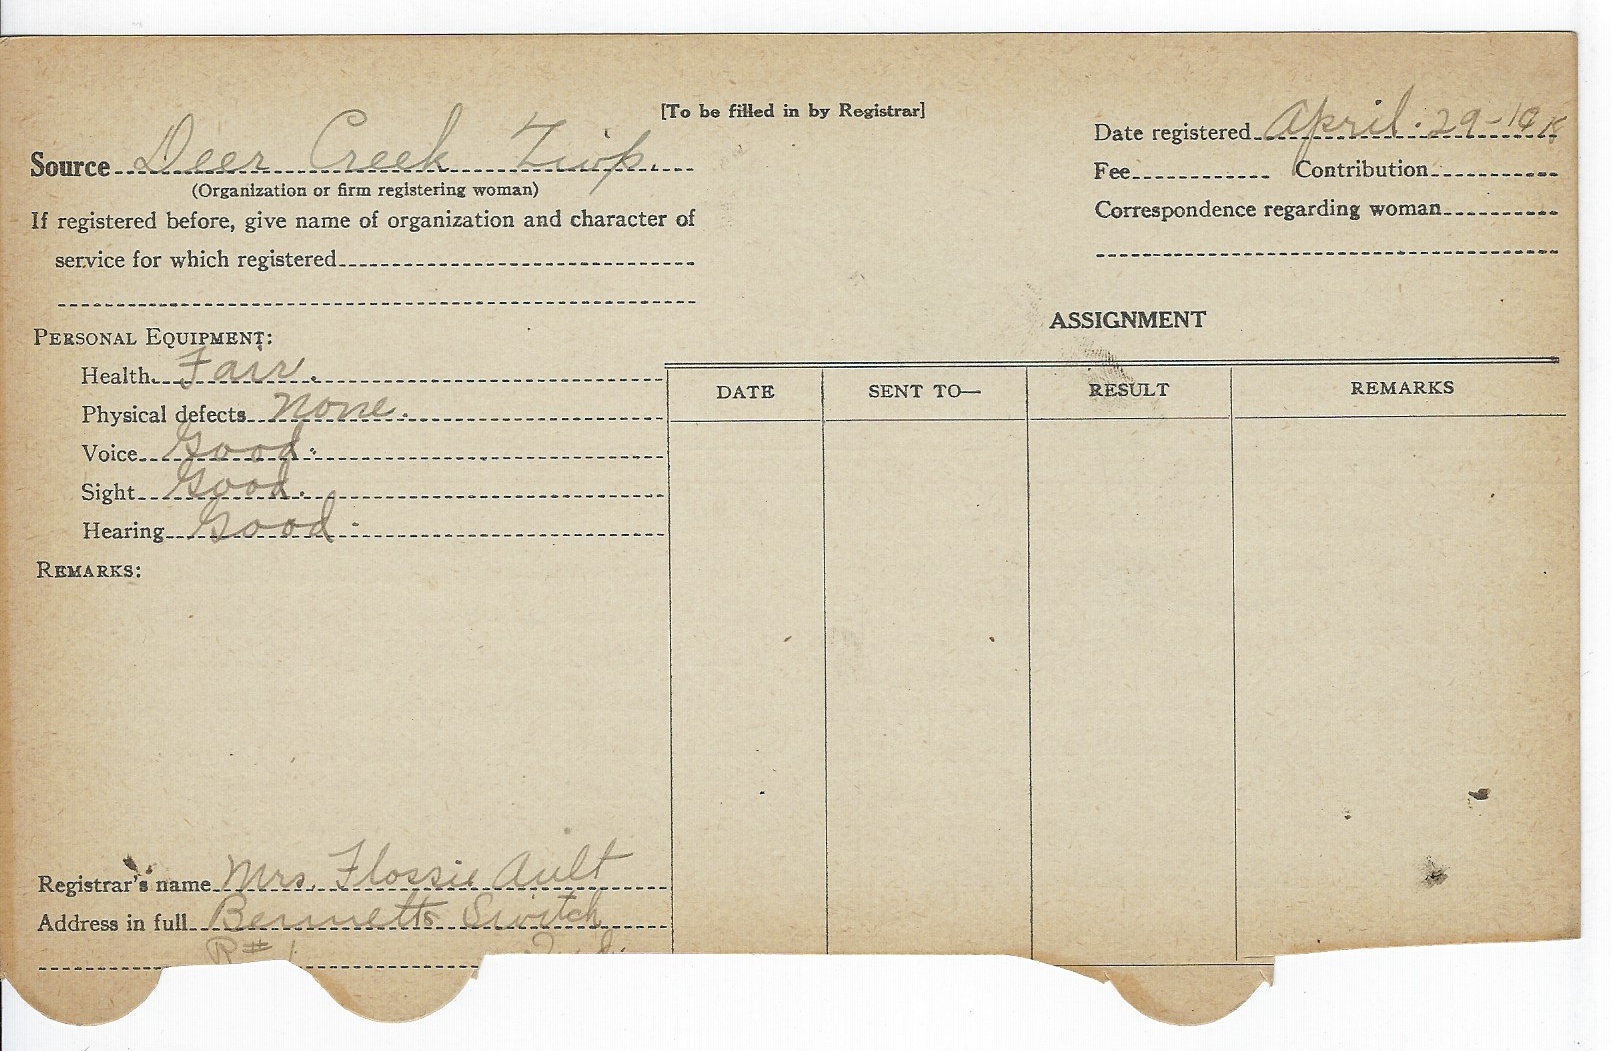 [To be filled in by Registrar]
Source Deer Creek Twp.
(Organization or firm registering woman)
If registered before, give name of organization and character of
service for which registered
Date registered April. 29-1918
Fee Contribution
Correspondence regarding woman
PERSONAL EQUIPMENT:
Health Fair.
Physical defects None.
Voice Good.
Sight Good.
Hearing Good.
REMARKS:
ASSIGNMENT
DATE SENT TO— RESULT REMARKS
Registrar's name Mrs. Flossie Ault
Address in full Bennetts Switch
R#1 Ind.